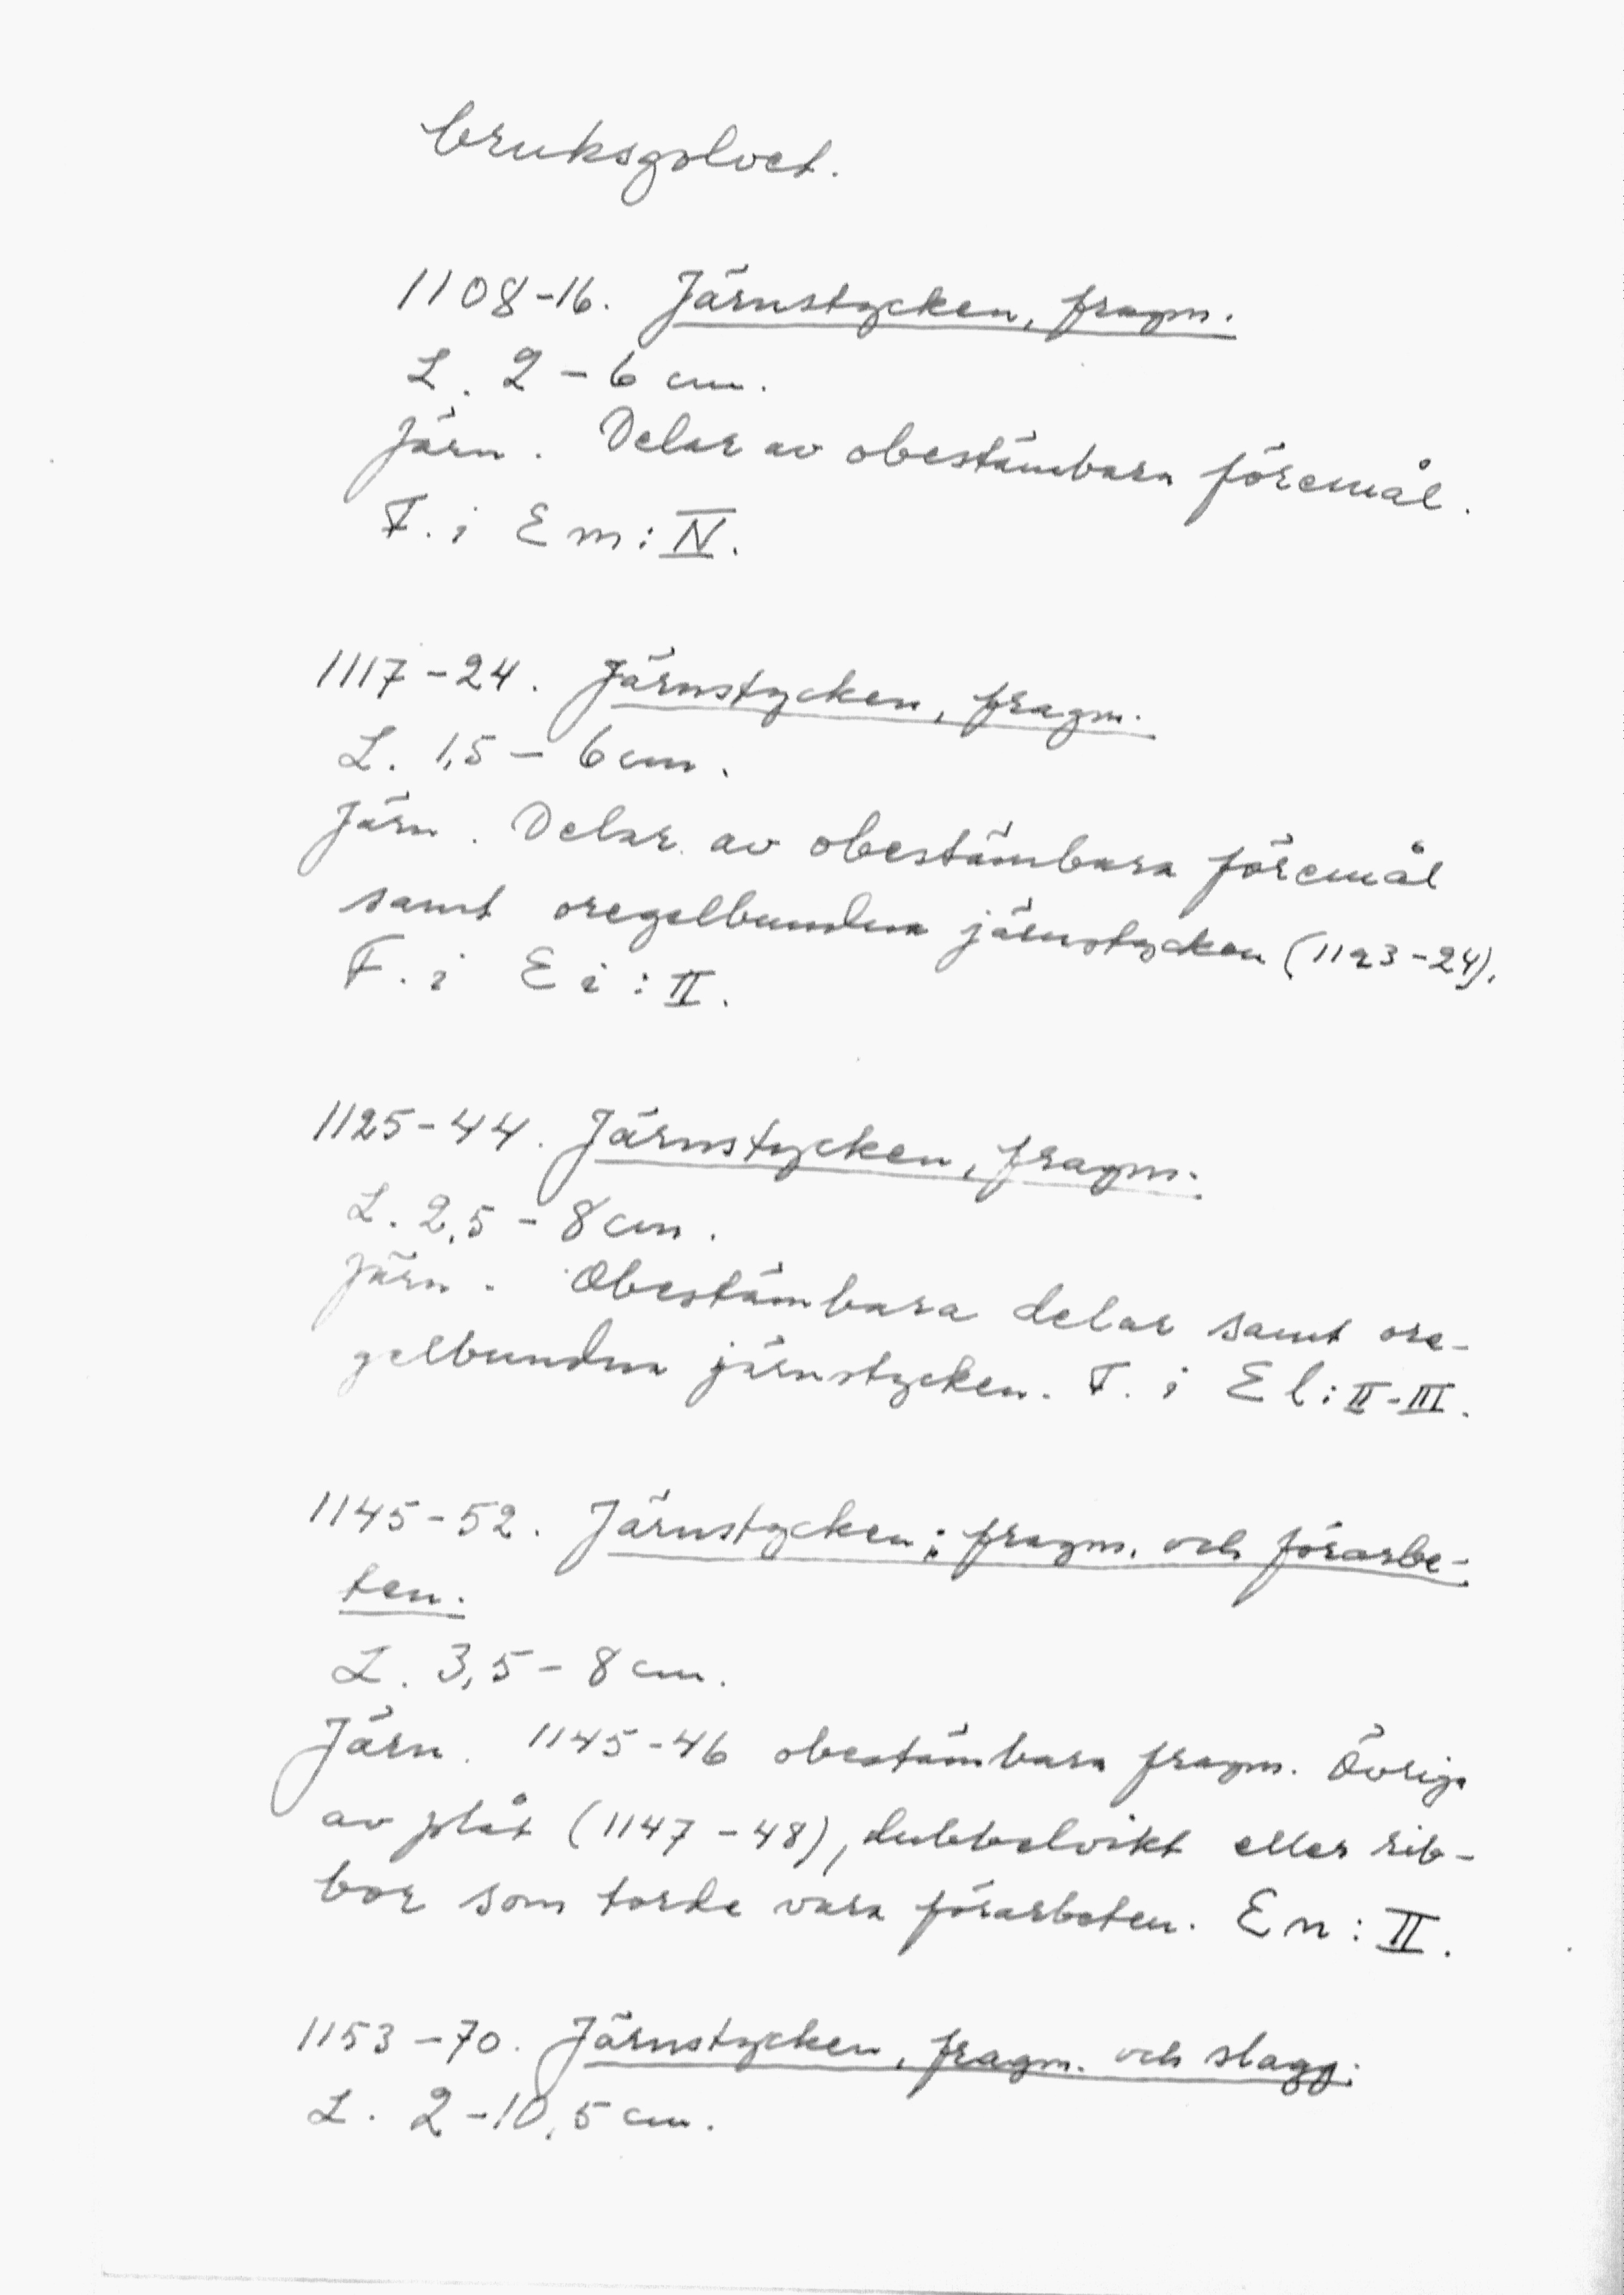 bruksgolvet.
1108-16. Järnstycken, fragm.
L. 2-6 cm.
Järn. Delar av obestämbara föremål.
F. i Em: IV.
1117-24. Järnstycken, fragm.
L. 1,5 - 6 cm.
Järn. Delar av obestämbara föremål
samt oregelbundna järnstycken (1123-24).
F. i Ei: II.
1125-44. Järnstycken, fragm.
L. 2,5 - 8 cm.
Järn. Obestämbara delar samt ore-
gelbundna järnstycken. F. i El: II-III.
1145-52. Järnstycken; fragm. och förarbe-
ten.
L. 3,5 - 8 cm.
Järn. 1145-46 obestämbara fragm. Övriga
av plåt (1147-48), dubbelvikt eller rib-
bor som torde vara förarbeten. En: II.
1153-70. Järnstycken, fragm. och slagg.
L. 2-10,5 cm.